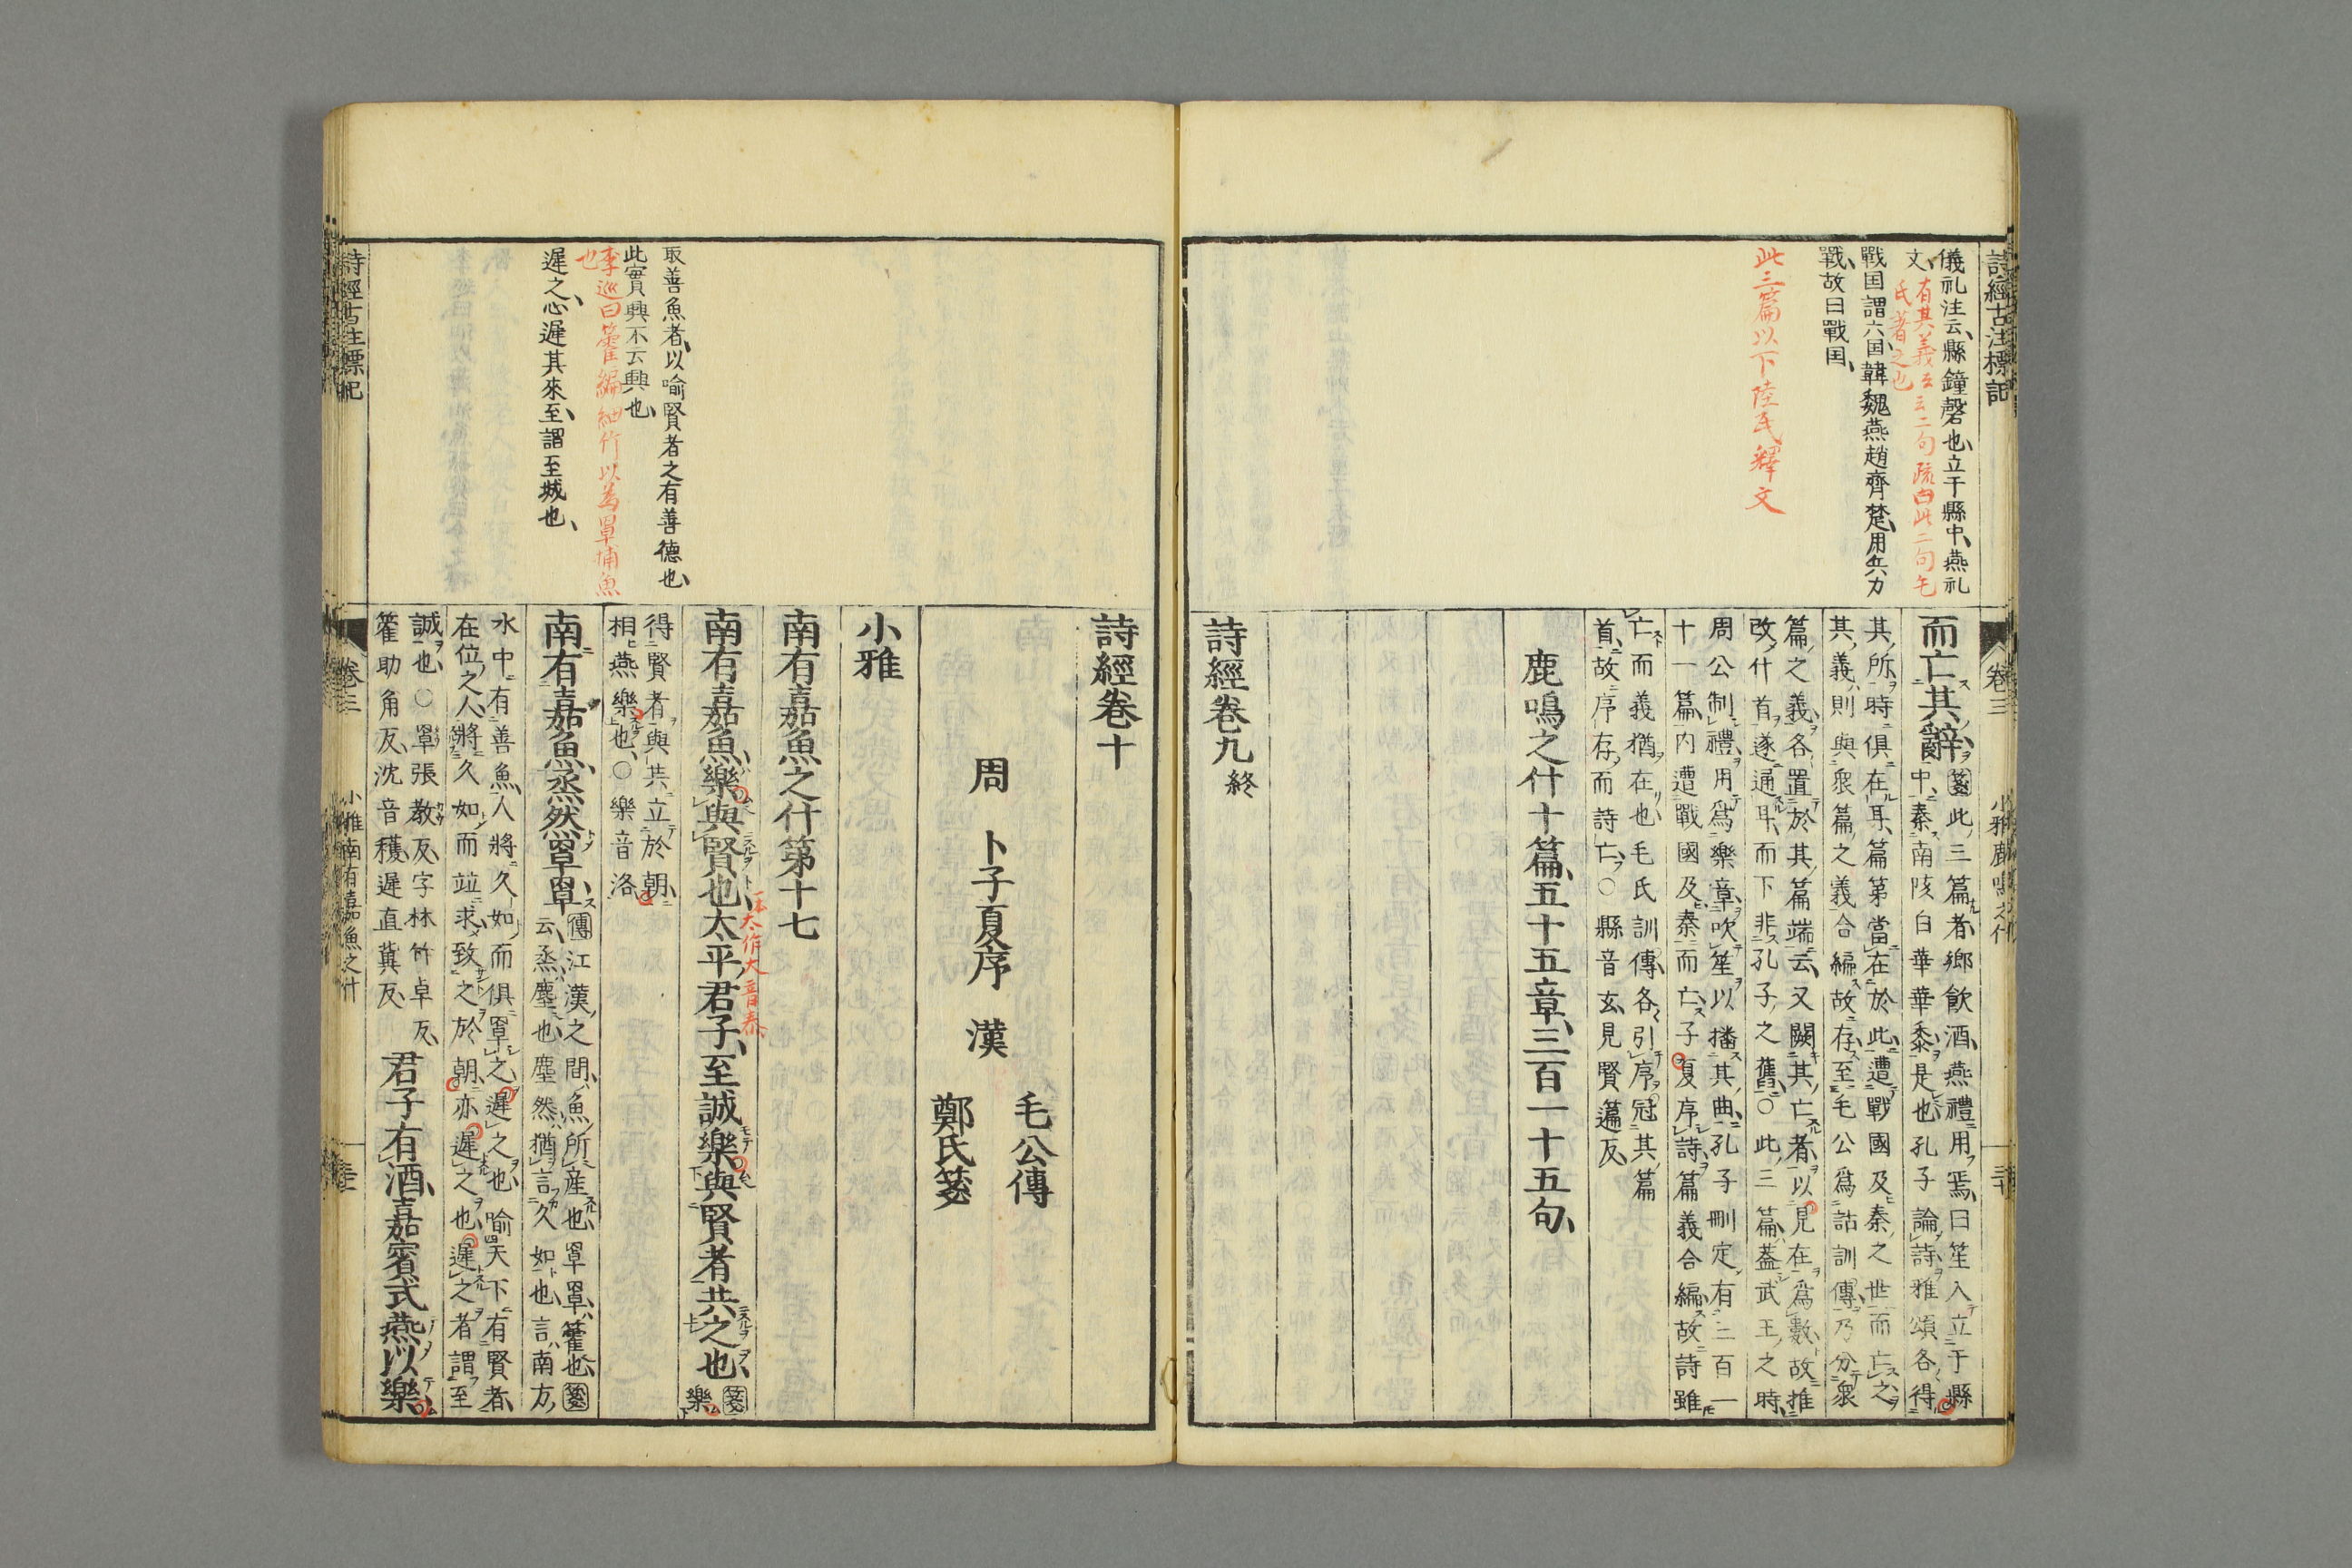 詩經古注標記
儀礼注云縣鐘磬也立于縣中燕礼
文
有其義云云二句疏曰此二句毛
氏著之也
戰国謂六国韓魏燕趙齊楚用兵力
戰故曰戰国
此三篇以下陸氏釋文
卷三 小雅鹿鳴之什
而亡其辭
箋此三篇者鄉飲酒燕禮用焉曰笙入立于縣
中奏南陔白華華黍是也孔子論詩雅頌各得
其所時俱在耳篇第當在於此遭戰國及秦之世而亡之
其義則與衆篇之義合編故存至毛公爲詁訓傳乃分衆
篇之義各置於其篇端云又闕其亡者以見在爲數故推
改什首遂通耳而下非孔子之舊○此三篇蓋武王之時
周公制禮用爲樂章吹笙以播其曲孔子刪定有三百一
十一篇内遭戰國及秦而亡子夏序詩篇義合編故詩雖
亡而義猶在也毛氏訓傳各引序冠其篇
首故序存而詩亡○縣音玄見賢遍反
鹿鳴之什十篇五十五章三百一十五句
詩經卷九終
取善魚者以喻賢者之有善德也
此實興不云興也
李巡曰籗編細竹以爲罩捕魚
也
遲之心遲其來至謂至城也
詩經卷十
周 卜子夏序 漢
毛公傳
鄭氏箋
小雅
南有嘉魚之什第十七
一本太作大音泰
南有嘉魚樂與賢也太平君子至誠樂與賢者共之也
箋
樂
得賢者與共立於朝
相燕樂也○樂音洛
南有嘉魚烝然罩罩
傳江漢之間魚所産也罩罩籗也箋
云烝塵也塵然猶言久如也言南方
水中有善魚人將久如而俱罩之遲之也喻天下有賢者
在位之人將久如而竝求致之於朝亦遲之也遲之者謂至
誠也○罩張教反字林竹卓反
籗助角反沈音穫遲直冀反
君子有酒嘉賓式燕以樂
詩經古注標記
卷三 小雅南有嘉魚之什